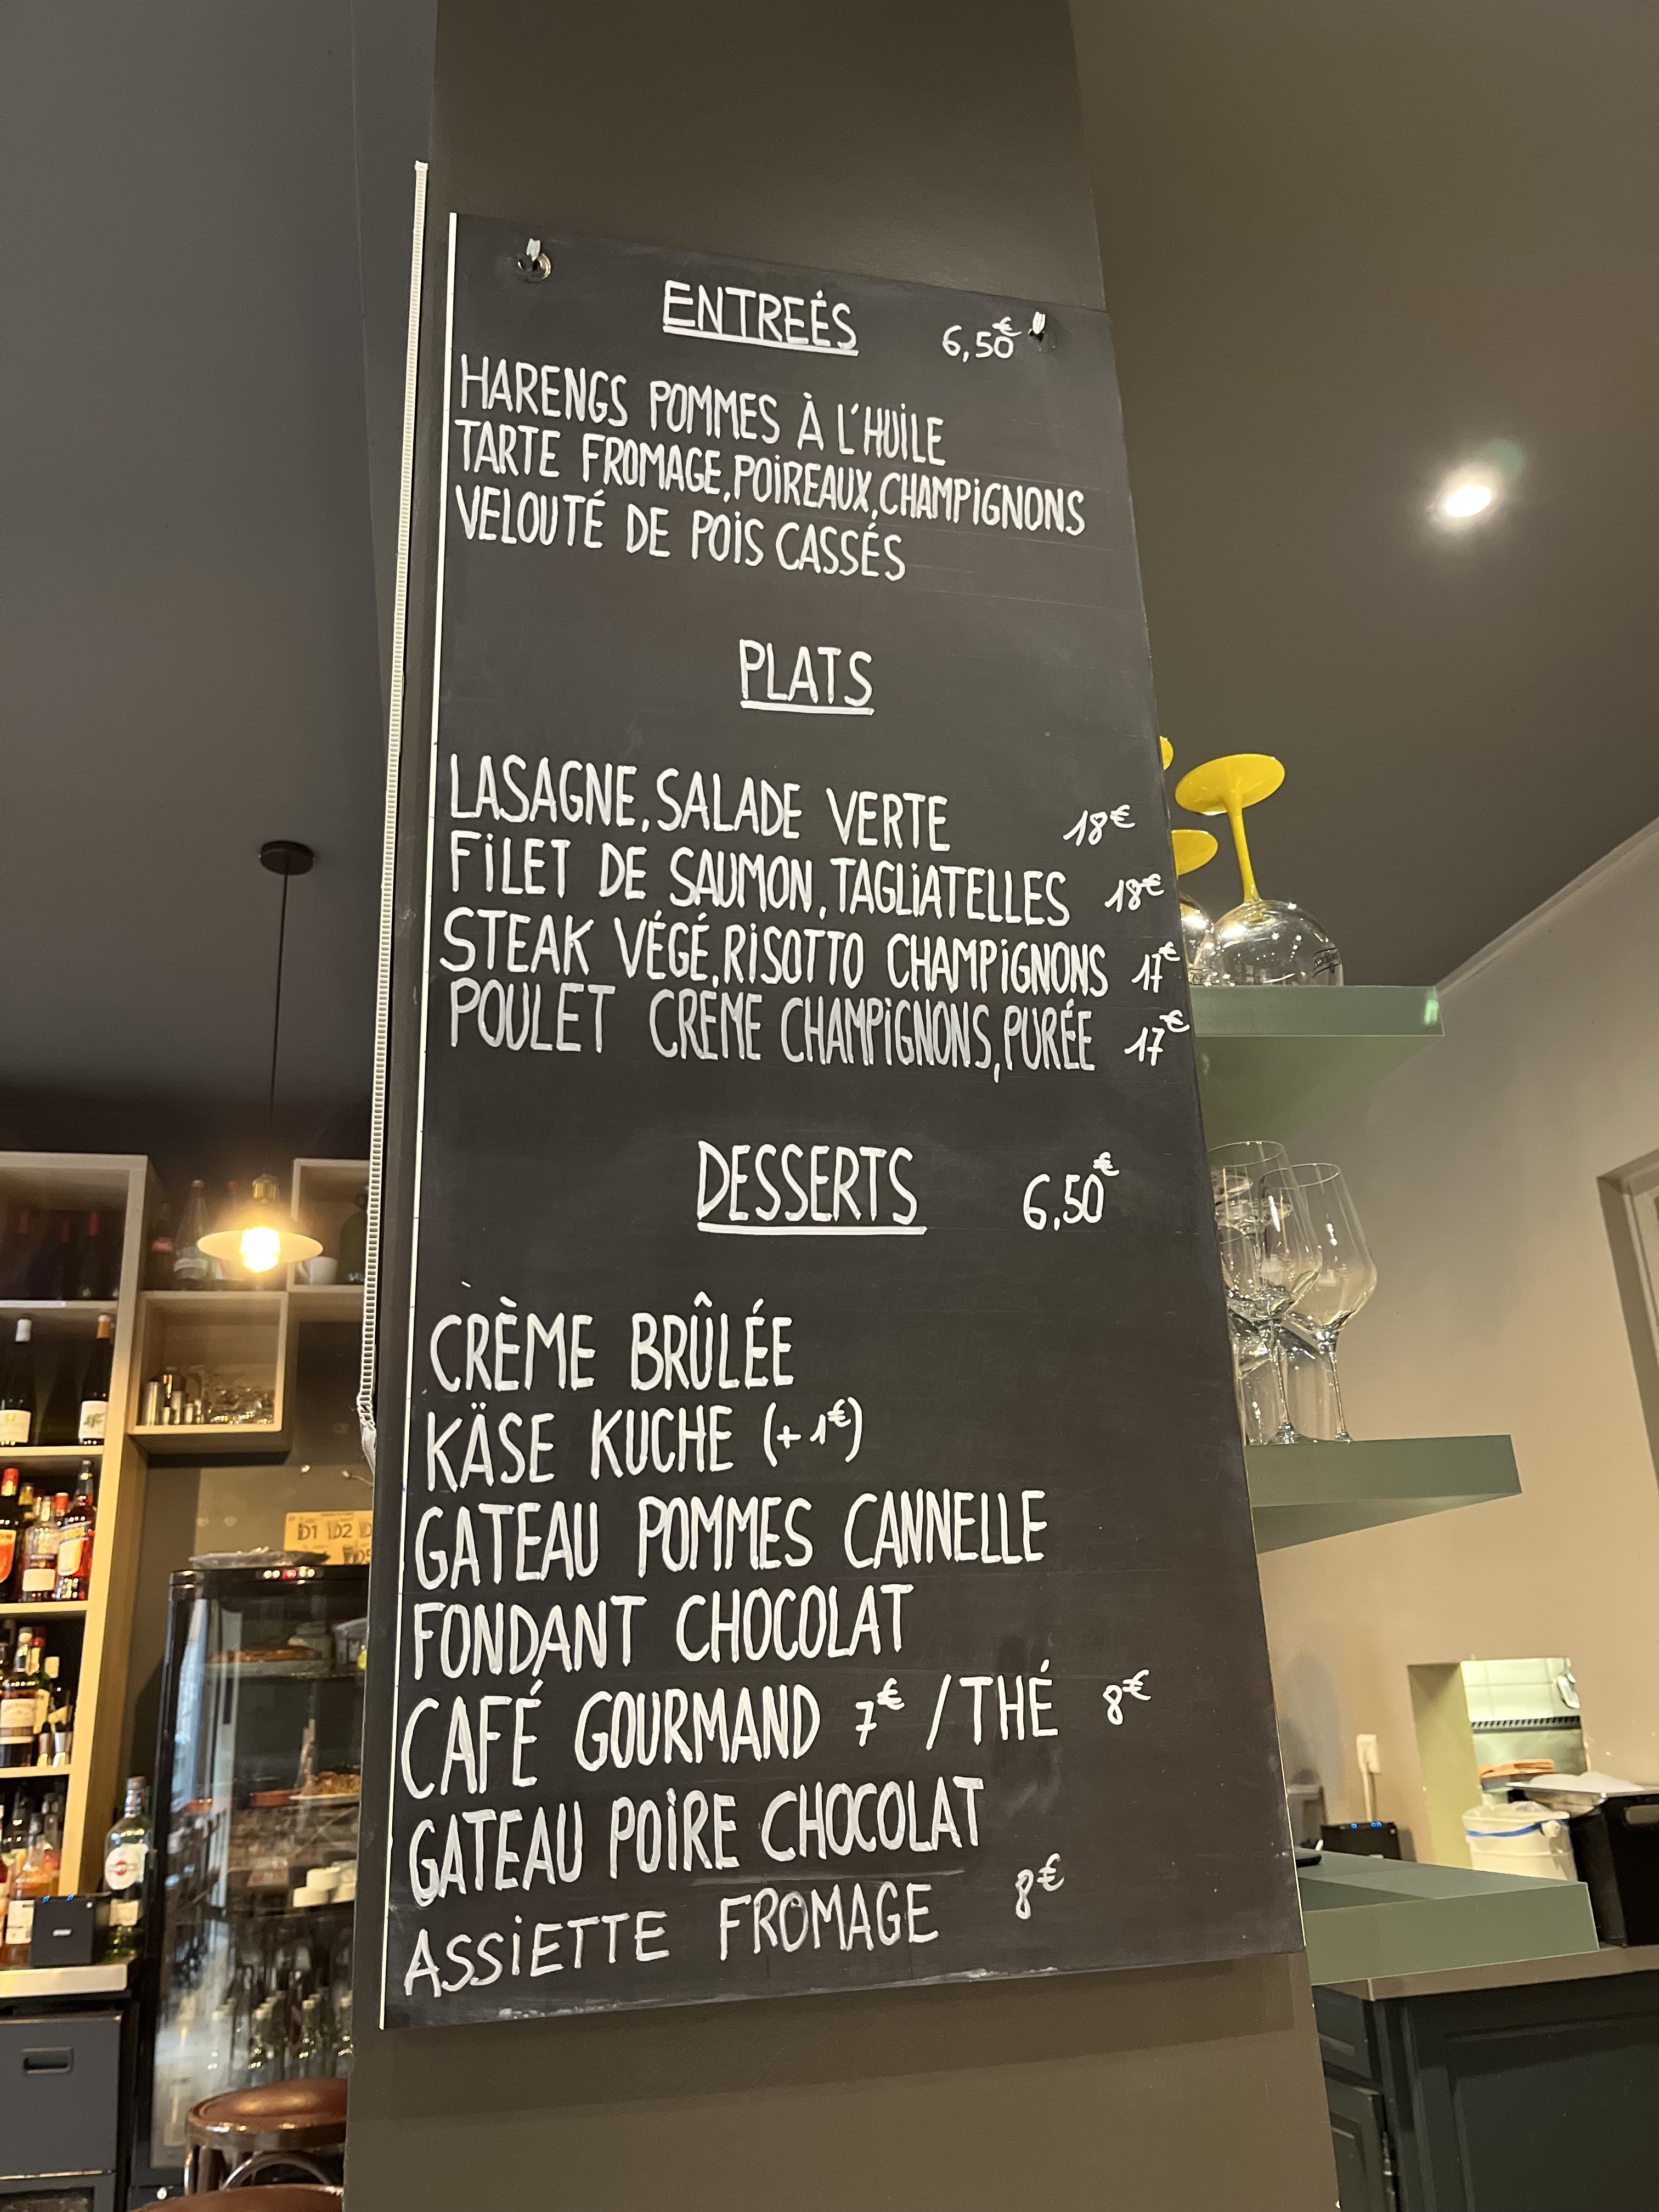 ENTREÉS 6,50€
HARENGS POMMES À L'HUILE
TARTE FROMAGE, POIREAUX, CHAMPIGNONS
VELOUTÉ DE POIS CASSÉS
PLATS
LASAGNE, SALADE VERTE 18€
FILET DE SAUMON, TAGLIATELLES 18€
STEAK VÉGÉ, RISOTTO CHAMPIGNONS 17€
POULET CREME CHAMPIGNONS, PURÉE 17€
DESSERTS 6,50€
CRÈME BRÛLÉE
KÄSE KUCHE (+1€)
GATEAU POMMES CANNELLE
FONDANT CHOCOLAT
CAFÉ GOURMAND 7€ / THÉ 8€
GATEAU POIRE CHOCOLAT
ASSIETTE FROMAGE 8€
D1 D2